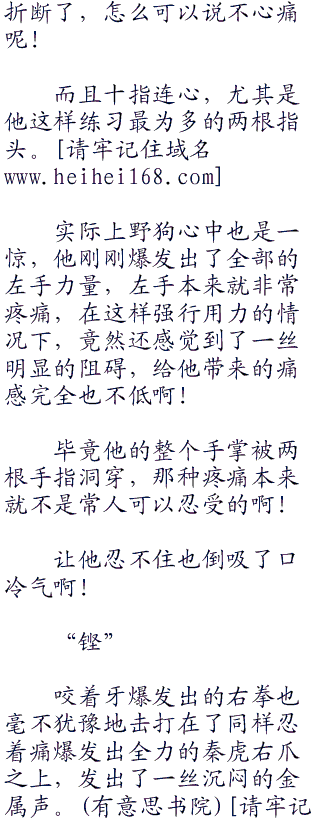 折断了，怎么可以说不心痛
呢！
而且十指连心，尤其是
他这样练习最为多的两根指
头。[请牢记住域名
www.heihei168.com]
实际上野狗心中也是一
惊，他刚刚爆发出了全部的
左手力量，左手本来就非常
疼痛，在这样强行用力的情
况下，竟然还感觉到了一丝
明显的阻碍，给他带来的痛
感完全也不低啊！
毕竟他的整个手掌被两
根手指洞穿，那种疼痛本来
就不是常人可以忍受的啊！
让他忍不住也倒吸了口
冷气啊！
“铿”
咬着牙爆发出的右拳也
毫不犹豫地击打在了同样忍
着痛爆发出全力的秦虎右爪
之上，发出了一丝沉闷的金
属声。(有意思书院)[请牢记